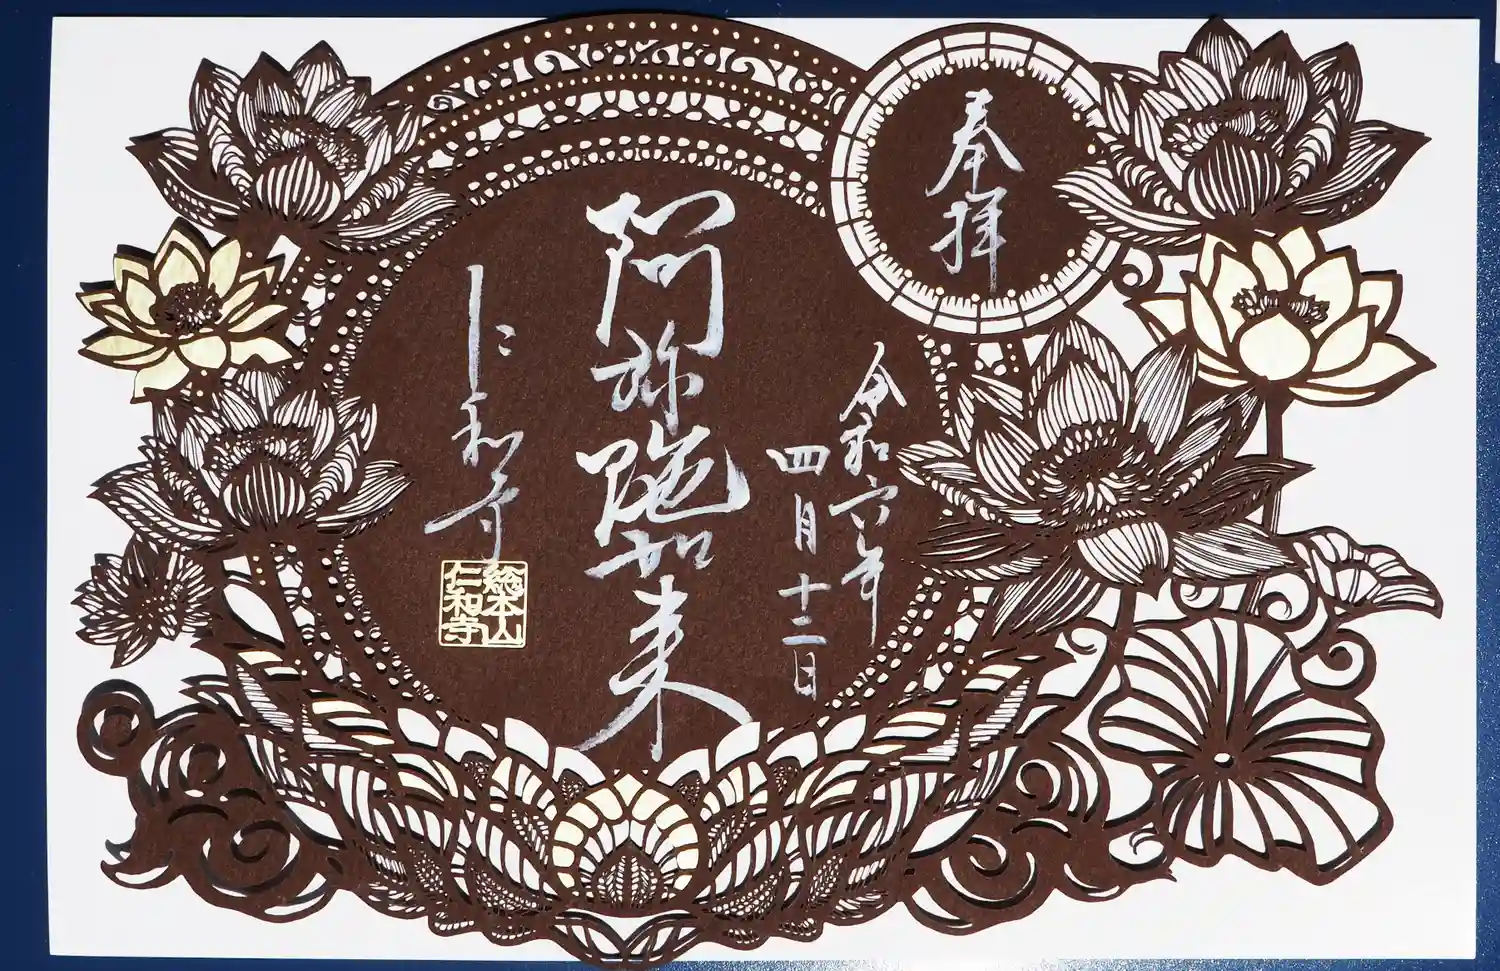 奉拝
令和六年
四月十三日
阿弥陀如来
仁和寺
総本山
仁和寺